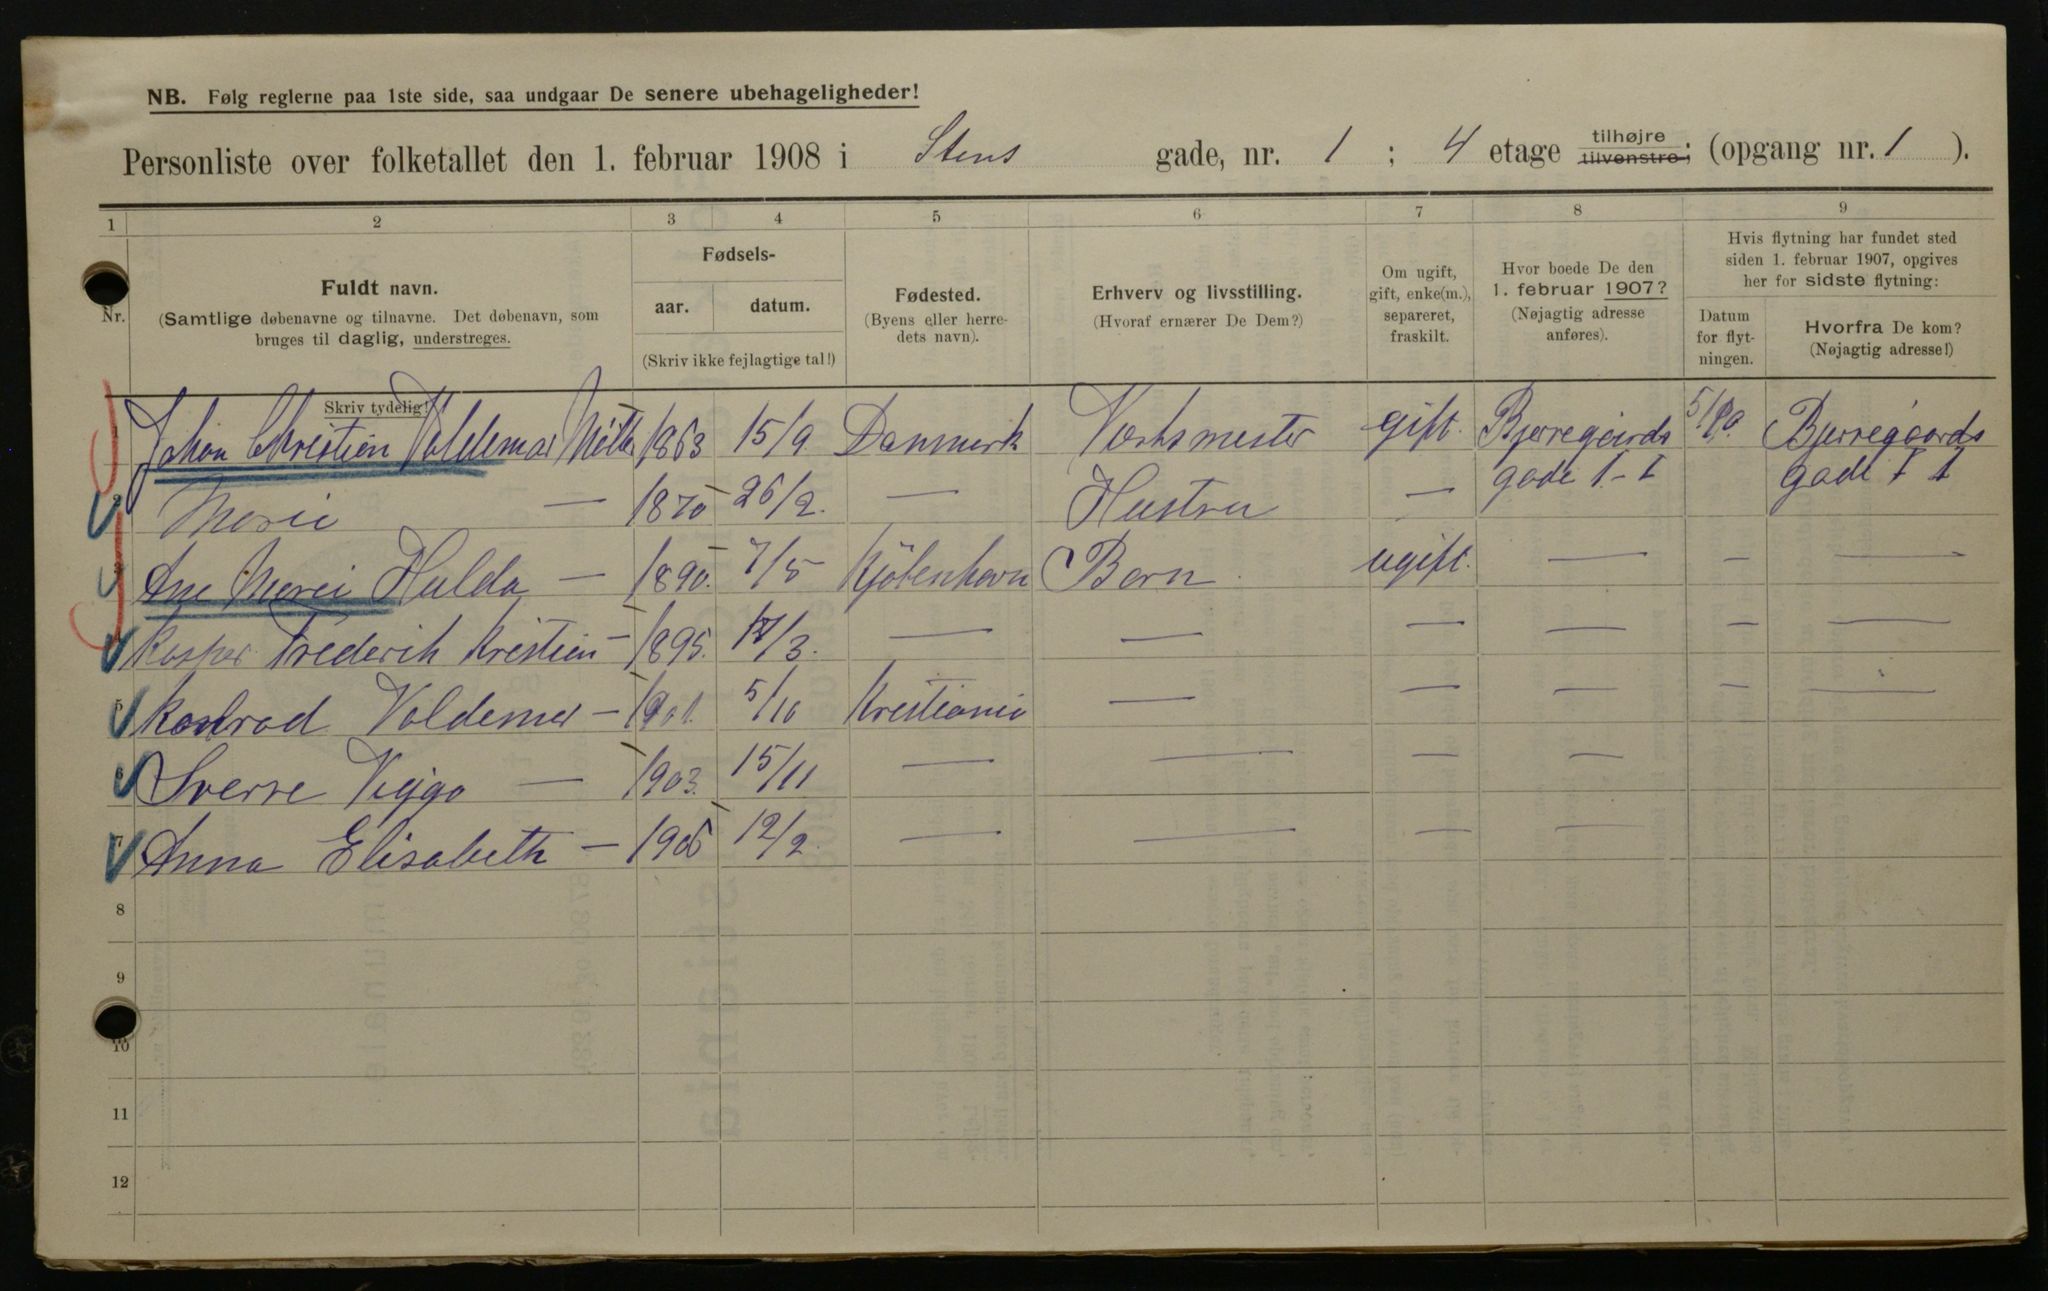 NB. Følg reglerne paa 1ste side, saa undgaar De senere ubehageligheder!
Personliste over folketallet den 1. februar 1908 i Stens gade, nr. 1 ; 4 etage tilhøjre tilvenstre; (opgang nr. 1 ).
1 2 3 4 5 6 7 8 9
Nr.
Fuldt navn.
(Samtlige døbenavne og tilnavne. Det døbenavn, som
bruges til daglig, understreges.
Skriv tydelig!
Fødsels-
aar. datum.
(Skriv ikke fejlagtige tal!)
Fødested.
(Byens eller herre-
dets navn).
Erhverv og livsstilling.
(Hvoraf ernærer De Dem?)
Om ugift,
gift, enke(m.),
separeret,
fraskilt.
Hvor boede De den
1. februar 1907?
(Nøjagtig adresse
anføres).
Hvis flytning har fundet sted
siden 1. februar 1907, opgives
her for sidste flytning:
Datum
for flyt-
ningen.
Hvorfra De kom?
(Nøjagtig adresse!)
1 Johan Christian Valdemar Møller 1863 15/9 Danmark Værksmester gift. Bjerregaards Bjerregaards
gade 1 - I gade I 1
2 Marie — 1870 26/2. — Hustru —
3 Ane Marie Hulda — 1890. 7/5 Kjøbenhavn Barn ugift. — — —
4 Kasper Frederik Kristian — 1895. 17/3. — — — — — —
5 Konrad Valdemar — 1901. 5/10 Kristiania — — — — —
6 Sverre Viggo — 1903. 15/11 — — — —
7 Anna Elisabeth — 1906 12/2 — — — —
8
9
10
11
12